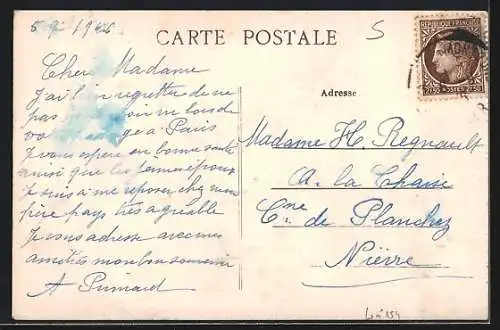 5 9 1946
CARTE POSTALE
S
REPUBLIQUE FRANÇAISE
Adresse
Chere Madame
J'ai bien regretter de ne
pas voir lors de
vo à Paris
Je vous espère en bonne santé
ainsi que les
Je suis à me reposer chez mon
père pays très agréable
Je vous adresse avec mes
amitiés mon bon souvenir
A
Madame H. Regnault
A. la Chaise
Cne de Planchez
Nièvre